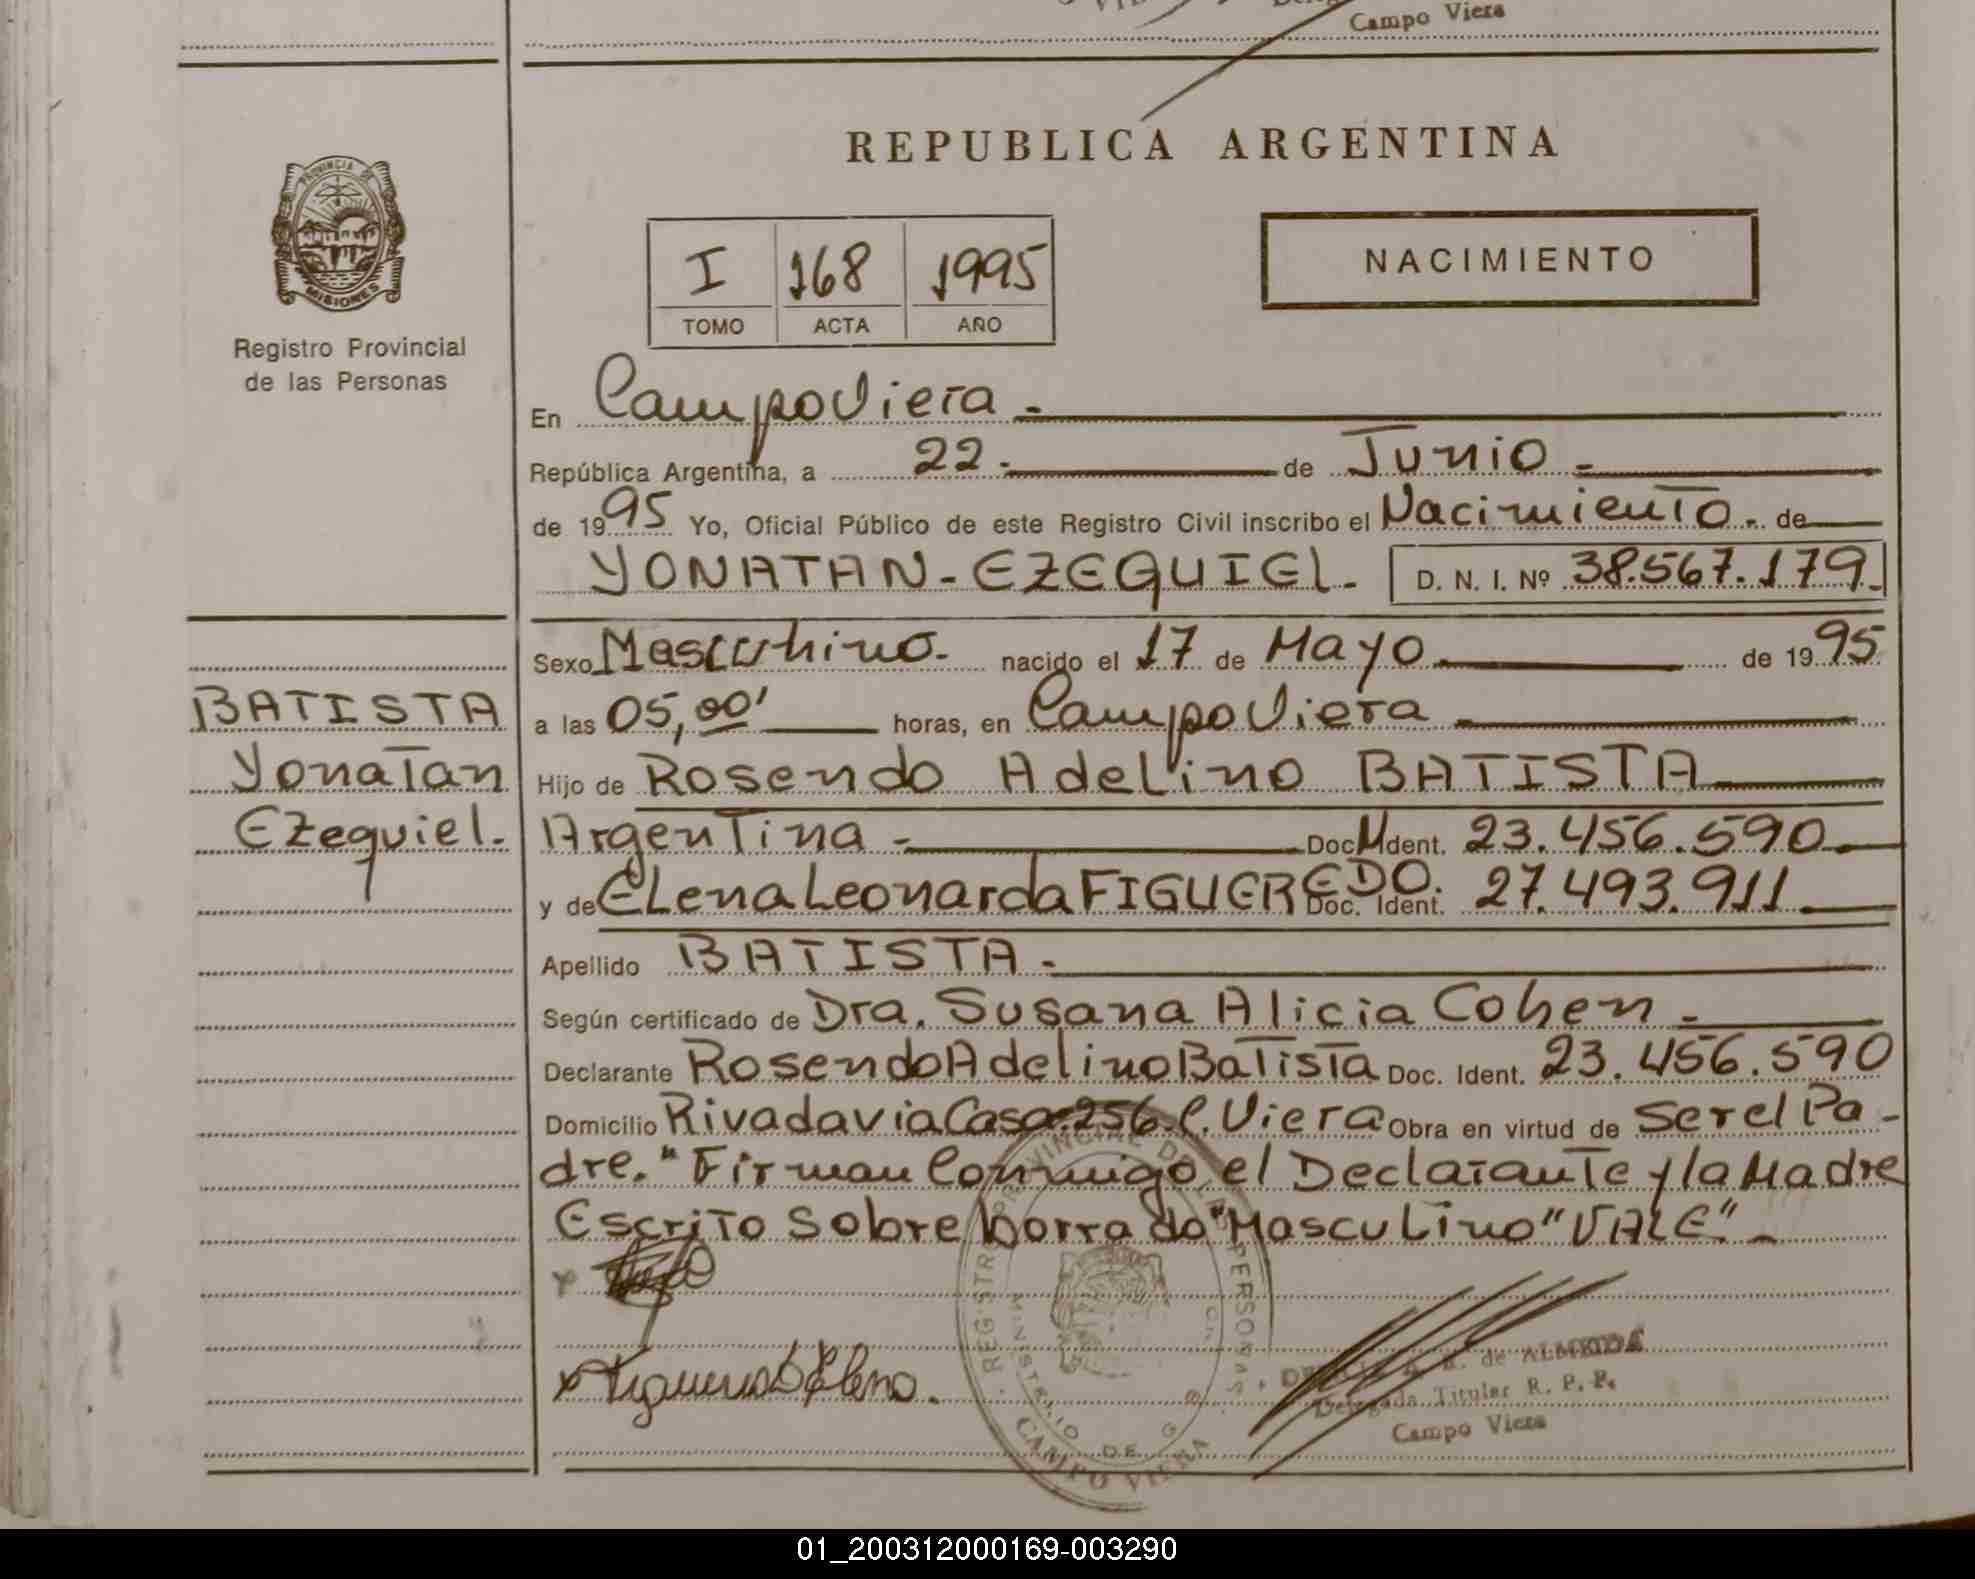 Campo Viera
PROVINCIA DE
MISIONES
Registro Provincial
de las Personas
BATISTA
Yonatan
Ezequiel.
REPUBLICA ARGENTINA
I 168 1995
TOMO ACTA AÑO
NACIMIENTO
En Campo Viera -
República Argentina, a 22.- de Junio -
de 1995 Yo, Oficial Público de este Registro Civil inscribo el Nacimiento. de
YONATAN - EZEQUIEL - D. N. I. Nº 38.567.179.-
Sexo Masculino. nacido el 17 de Mayo de 1995
a las 05,00' horas, en Campo Viera
Hijo de Rosendo Adelino BATISTA
Argentina - Doc. M Ident. 23.456.590
y de Elena Leonarda FIGUEREDO. Doc. Ident. 27.493.911
Apellido BATISTA -
Según certificado de Dra. Susana Alicia Cohen -
Declarante Rosendo Adelino Batista Doc. Ident. 23.456.590
Domicilio Rivadavia Casa: 256. C. Viera Obra en virtud de Ser el Pa-
dre." Firman Conmigo, el Declarante y la Madre
Escrito Sobre borrado "Masculino" "VALE" -
x
x Figueredo Elena.
REGISTRO PROVINCIAL DE LAS PERSONAS
MINISTERIO DE
CAMPO VIERA
de ALMEIDA
Delegada Titular R. P. P.
Campo Viera
01_200312000169-003290